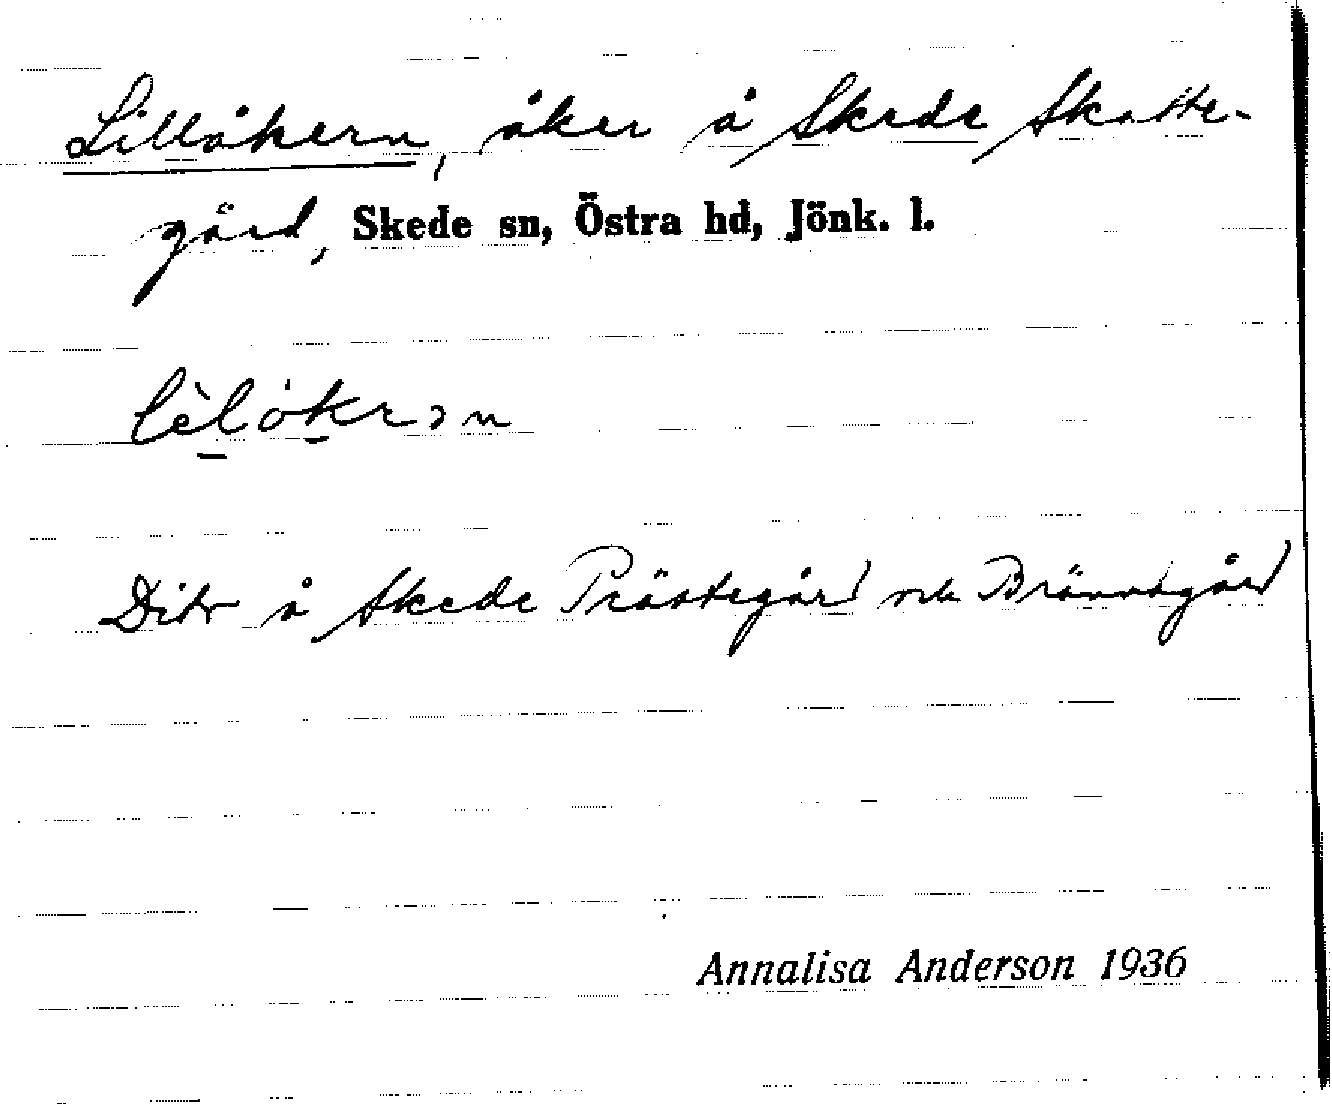 Lillåkern, åker å Skede Skatte-
gård, Skede sn, Östra hd, Jönk. l.
lèlókrɔn
Dito å Skede Prästegård och Brännegård
Annalisa Anderson 1936